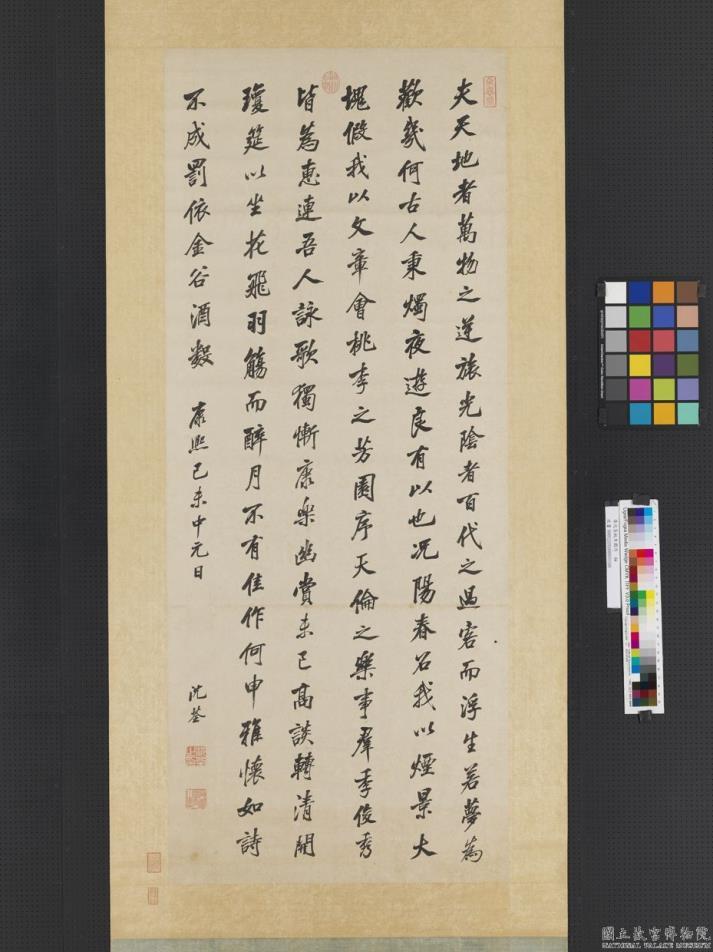 夫天地者萬物之逆旅光陰者百代之過客而浮生若夢為
歡幾何古人秉燭夜遊良有以也況陽春召我以煙景大
塊假我以文章會桃李之芳園序天倫之樂事羣季俊秀
皆為惠連吾人詠歌獨慚康樂幽賞未已高談轉清開
瓊筵以坐花飛羽觴而醉月不有佳作何申雅懷如詩
不成罰依金谷酒數
康熙己未中元日
沈荃
國立故宮博物院
NATIONAL PALACE MUSEUM